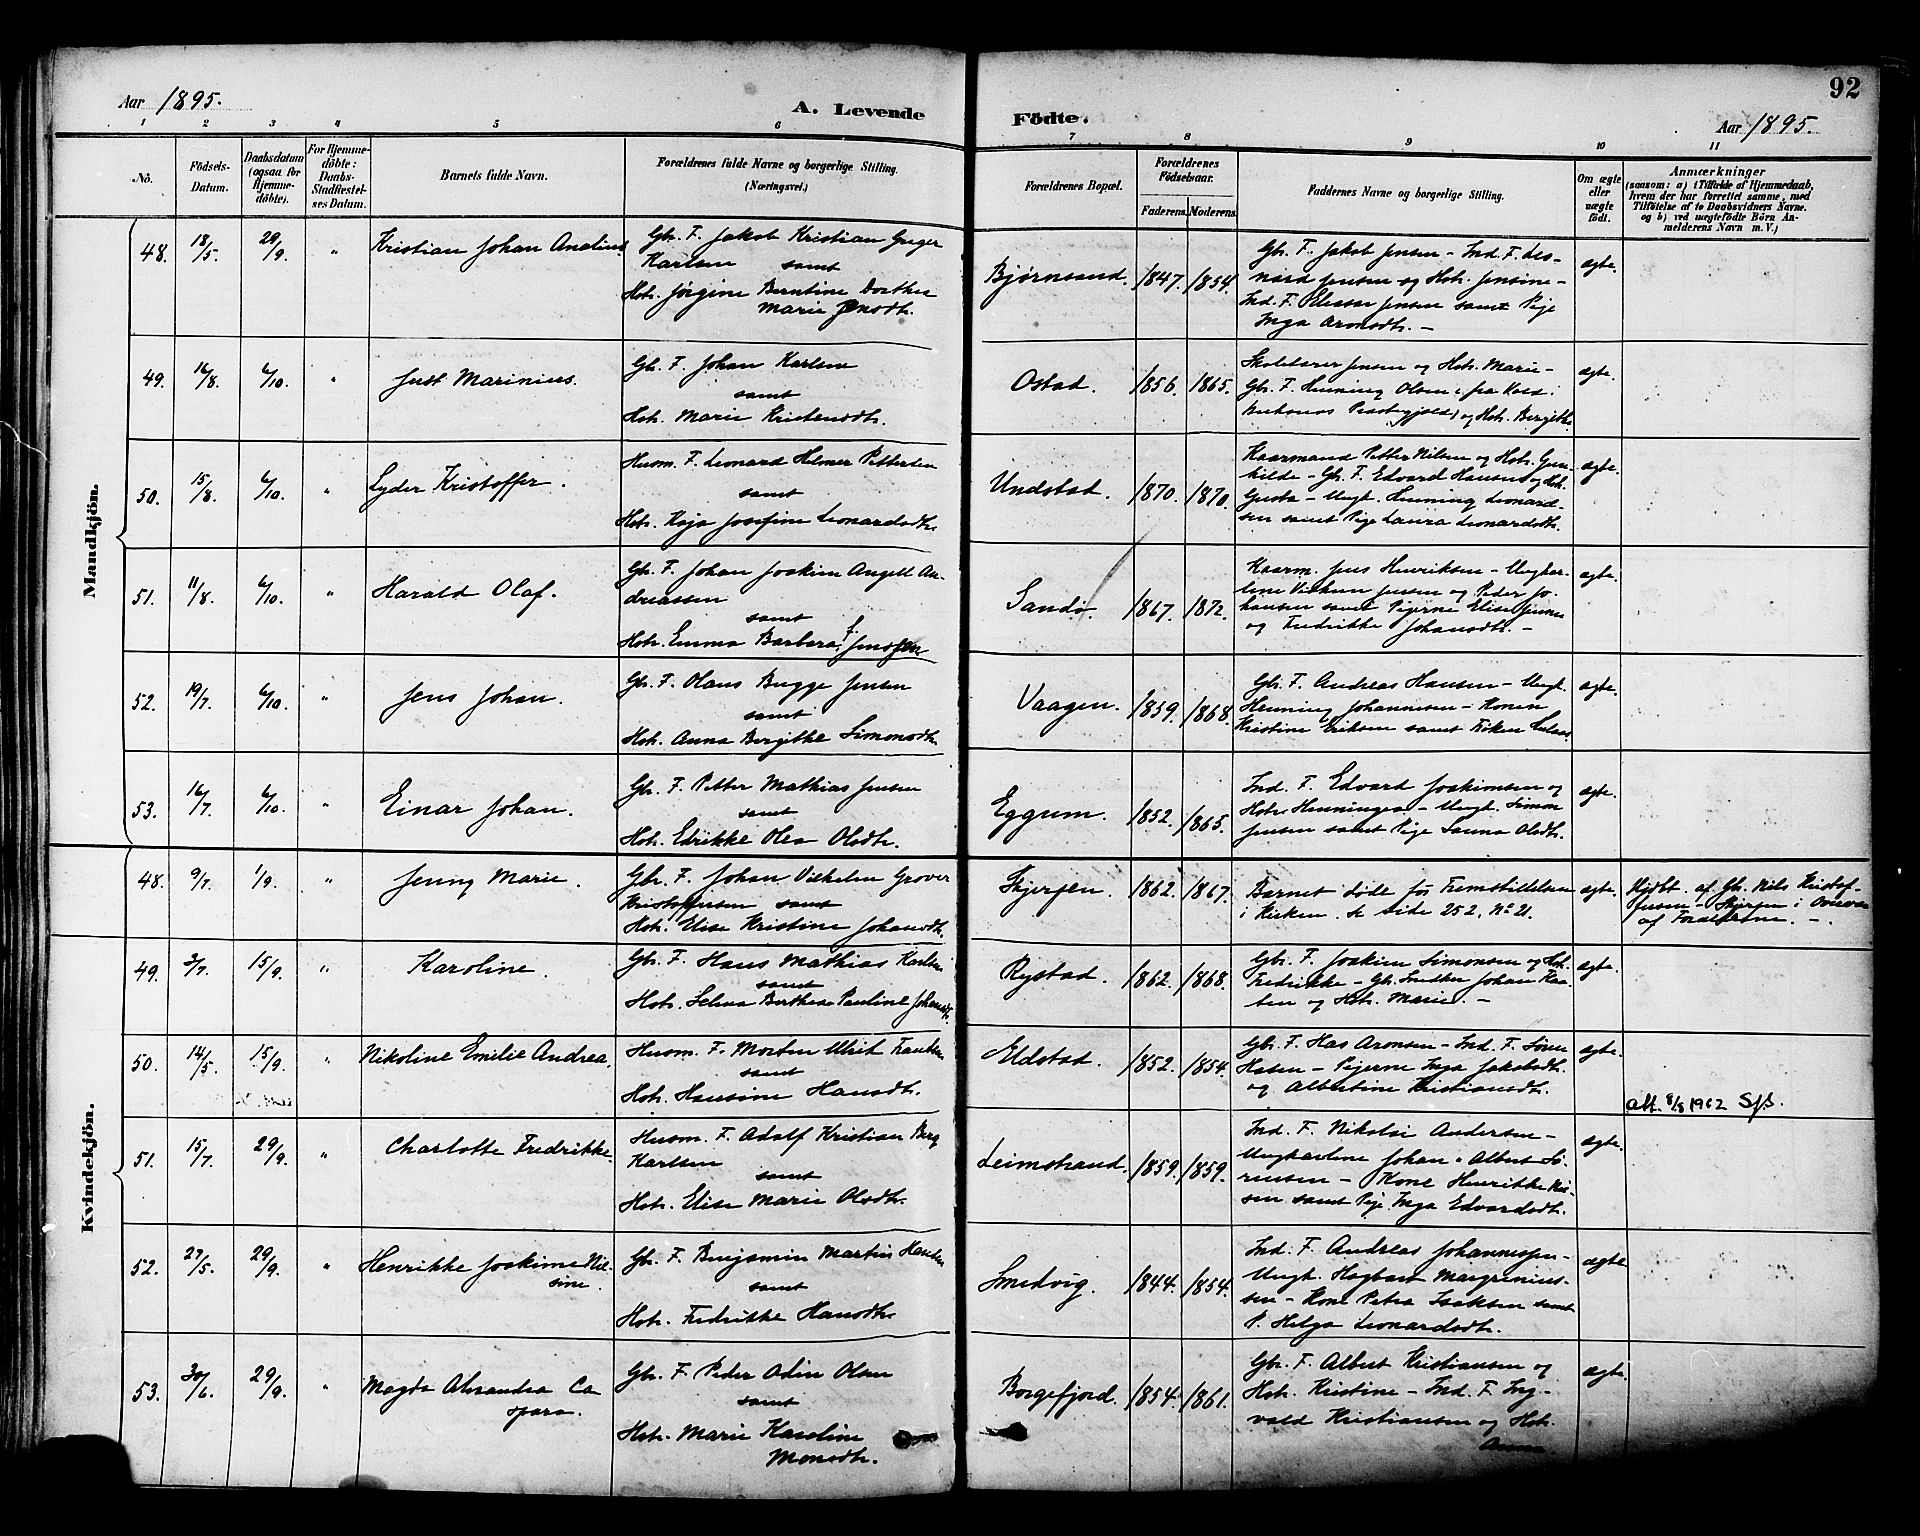 92
Aar 1895.
A. Levende
Födte.
Aar 1895.
1 2 3 4 5 6 7 8 9 10 11
No.
Födsels-
Datum.
Daabsdatum
(ogsaa for
Hjemme-
döbte).
For Hjemme-
döbte:
Daabs-
Stadfæstel-
ses Datum.
Barnets fulde Navn.
Forældrenes fulde Navne og borgerlige Stilling.
(Næringsvei.)
Forældrenes Bopæl.
Forældrenes
Födselsaar.
Faderens.
Moderens.
Faddernes Navne og borgerlige Stilling.
Om ægte
eller
uægte
født.
Anmærkninger
(saasom: a) i Tilfælde af Hjemmedaab,
hvem der har forrettet samme, med
Tilföielse af to Daabsvidners Navne.
og b) ved uægtefödte Börn An-
melderens Navn m. V.)
Mandkjön.
48. 18/5 29/9 "
Kristian Johan Analius.
Gbr. F. Jakob Kristian Greger
Karlsen samt
Hstr. Jørgine Berntine Dorthea
Marie
Bjørnsand. 1847. 1854.
Gbr. F. Jakob Jensen - Ind. F.
Jensen og Hstr. Jensine -
Ind. F. Jensen samt Pige
Inga Aronsdtr. -
ægte.
49. 16/8. 6/10. "
Just Marinius.
Gbr. F. Johan Karlsen
samt
Hstr. Marie Kristensdtr.
Ostad. 1856. 1865.
Skolelærer Jensen og Hstr. Marie -
Gbr. F. Henning Olsen (fra
Præstegjeld) og Hstr. Bergitte.
ægte.
50. 15/8. 6/10. "
Lyder Kristoffer.
Husm. F. Leonard Helmer Pettersen
samt
Hstr. Kaja Josefine Leonardsdtr.
Undstad. 1870. 1870.
Kaarmand Petter Nilsen og Hstr. Gun-
hilde - Gbr. F. Edvard Hansen og Hstr.
Gusta - Ungk. Henning Leonard-
sen samt Pige Laura Leonardsdtr.
ægte.
51. 11/8 6/10. "
Harald Olaf.
Gbr. F. Johan Joakim Angell An-
dreassen
samt
Hstr. Emma Barbara F. Jensen
Sandø. 1867. 1872.
Kaarm. Jens Henriksen - Ungkar-
lene Vilhelm Jensen og Peder Jo-
hansen samt Pigerne Elise Jensen
og Fredrikke Johansdtr. -
ægte.
52. 19/7. 6/10. "
Jens Johan.
Gbr. F. Olaus Bugge Jensen
samt
Hstr. Anna Bergitte Simonsdtr.
Vaagen. 1859. 1868.
Gbr. F. Andreas Hansen - Ungk.
Henning Johannesen - Konen
Kristine Eriksen samt
ægte.
53. 16/7. 6/10. "
Einar Johan.
Gbr. F. Petter Mathias Jensen
samt
Hstr. Edrikke Olea Olsdtr.
Eggum. 1852. 1865.
Ind. F. Edvard Joakimsen og
Hstr. Henningea - Ungk. Simon
Jensen samt Pige Olsdtr.
ægte.
Kvindekjön.
48. 9/7. 1/9. "
Jenny Marie.
Gbr. F. Johan Vilhelm Grover
Kristoffersen samt
Hstr. Elise Kristine Johansdtr.
Skjerpen. 1862. 1867.
Barnet døde før Fremstillelsen
i Kirken. se side 252. No 21.
ægte.
Hjdbt. af Gbr. Nils Kristof-
fersen - Skjerpen i Overvær
af Forældrene. -
49. 3/7. 15/9. "
Karoline.
Gbr. F. Hans Mathias Karlsen
samt
Hstr. Selma Berthea Pauline Johansdtr.
Rystad. 1862. 1868.
Gbr. F. Joakim Simonsen og Hstr.
Fredrikke - Gbr. Snedker Johan
og Hstr. Marie. -
ægte.
50. 14/5. 15/9. "
Nikoline Emilie Andrea.
Husm. F. Morten Ulrik
samt
Hstr. Hansine Hansdtr.
Eldstad. 1852. 1854.
Gbr. F. Has Aronsen - Ind. F. Søren
Hasen - Pigerne Inga Jakobsdtr.
og Albertine Kristiansdtr.
ægte.
att. 8/8 1962 SfS.
51. 15/7. 29/9. "
Charlotte Fredrikke.
Husm. F. Adolf Kristian Berg
Karlsen
samt
Hstr. Elise Marie Olsdtr.
Leimstrand. 1859. 1859.
Ind. F. Nikolai Andersen -
Ungkarlene Johan & Albert Sø-
rensen - Kone Henrikke Nil-
sen samt Pige Inga Edvardsdtr.
ægte.
52. 27/5. 29/9. "
Henrikke Joakime Nil-
sine.
Gbr. F. Benjamin Martin Hansen
samt
Hstr. Fredrikke Hansdtr.
Smedvig. 1844. 1854.
Ind. F. Andreas Johannessen -
Ungk. Hagbart Margrenius-
sen - Kone Petra Isaksen samt
P. Helga Leonardsdtr.
ægte
53. 30/6. 29/9. "
Magda Alexandra Ca
spara.
Gbr. F. Peder Odin Olsen
samt
Hstr. Marie Karoline
Monsdtr.
Borgefjord. 1854. 1861.
Gbr. F. Albert Kristiansen og
Hstr. Kristine - Ind. F. Ing-
vald Kristiansen og Hstr.
Anna
ægte.